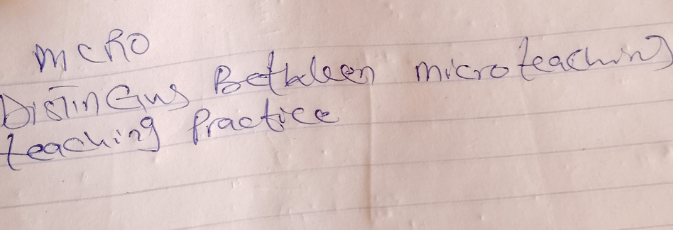 MCRO
DISTINGUS Between microteaching
teaching Practice